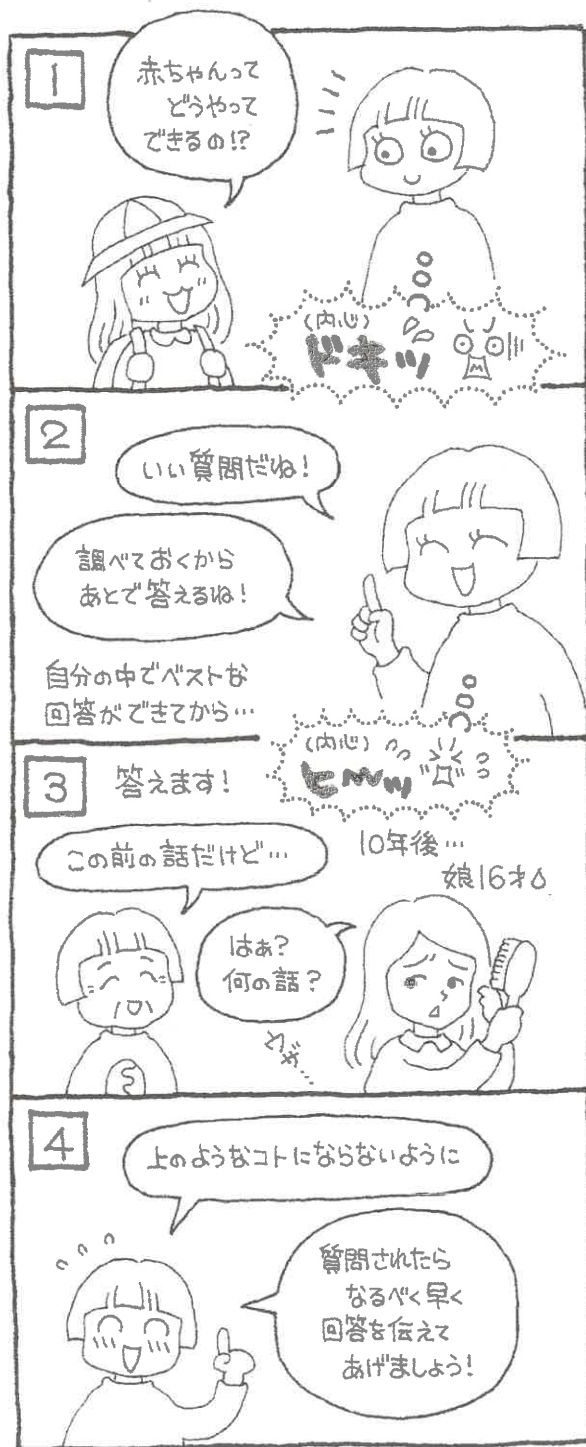 1
赤ちゃんって
どうやって
できるの!?
(内心)
ドキッ
2
いい質問だね!
調べておくから
あとで答えるね!
自分の中でベストな
回答ができてから…
(内心)
ヒーッ
3
答えます!
この前の話だけど…
10年後…
娘16才
はぁ?
何の話?
4
上のようなコトにならないように
質問されたら
なるべく早く
回答を伝えて
あげましょう!